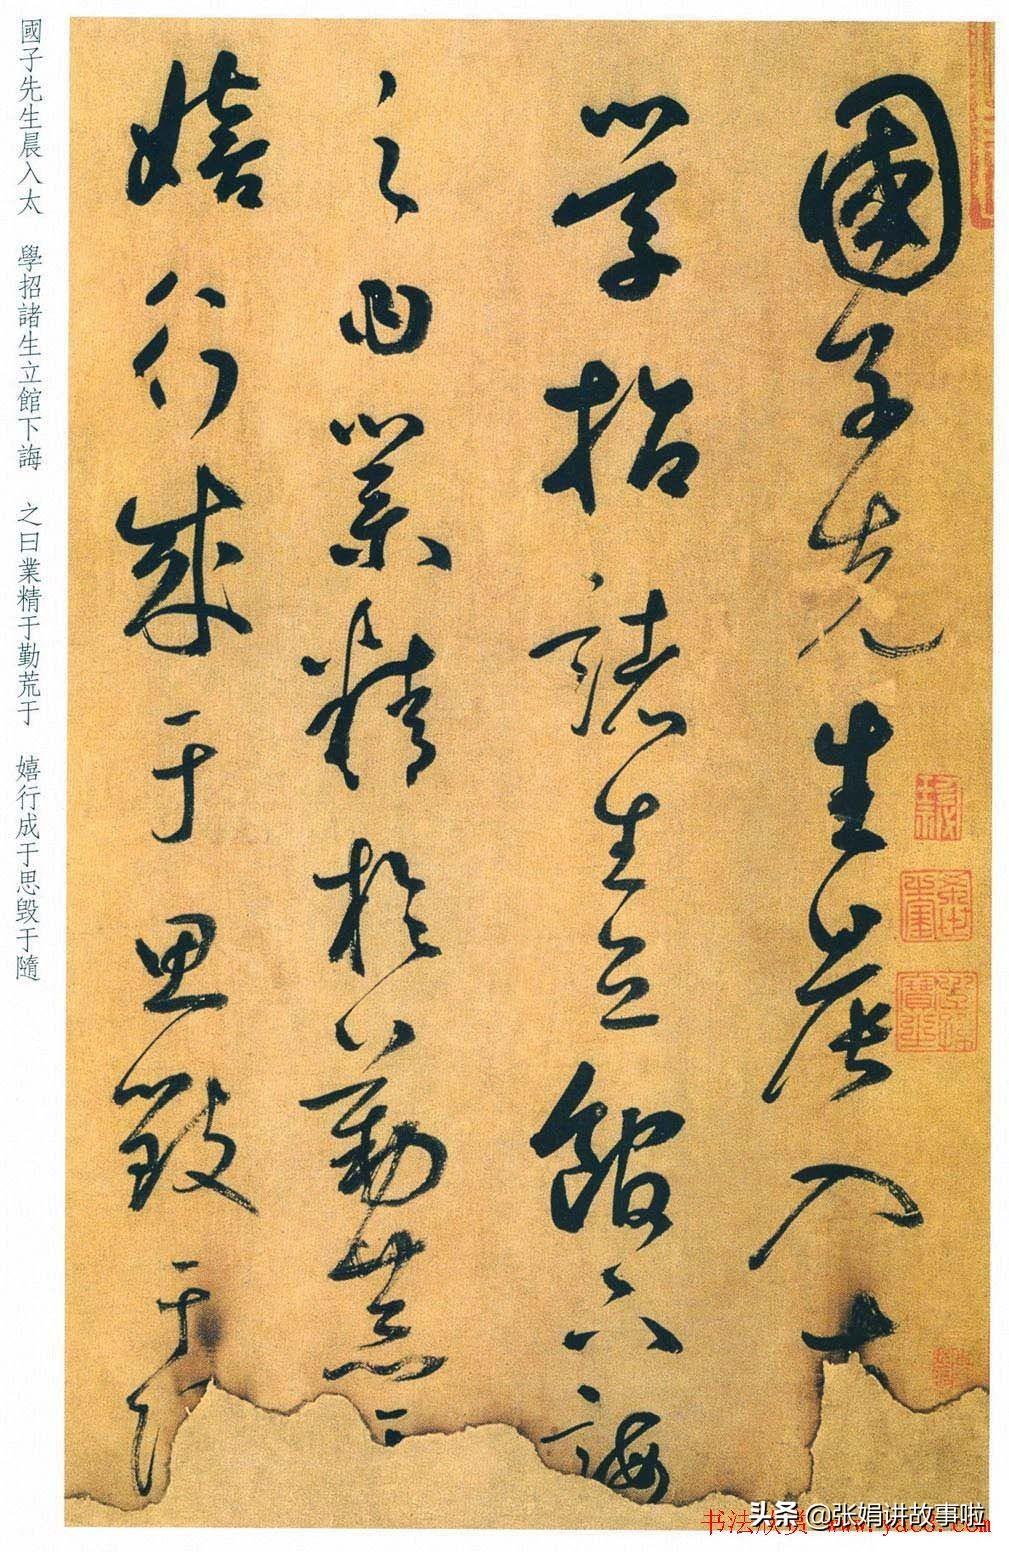 國子先生晨入太
學招諸生立館下誨
之曰業精於勤荒于
嬉行成于思毀于
國子先生晨入太　學招諸生立館下誨　之曰業精于勤荒于　嬉行成于思毀于隨
头条 @张娟讲故事啦
书法欣赏 www.yac8.com